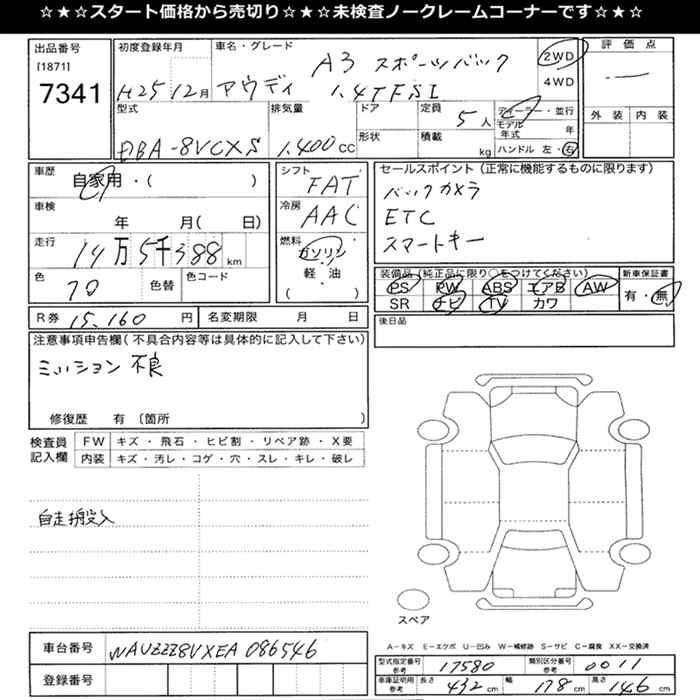 ☆★☆★スタート価格から売切り☆★☆★未検査ノークレームコーナーです☆★☆
出品番号
[1871]
7341
初度登録年月
H25 12月
車名・グレード
A3 スポーツバック
アウディ 1.4TFSI
2WD
4WD
評価点
外装 内装
型式
DBA-8VCXS
排気量
1.400cc
ドア
形状
定員
5人
積載
kg
ディーラー・並行
モデル年式 年
ハンドル 左・右
車歴
自家用・( )
車検
年 月( 日)
走行
14万5千388km
色
色替
色コード
シフト
FAT
冷房
AAC
燃料
ガソリン
軽・油
( )
セールスポイント(正常に機能するものに限ります)
バックカメラ
ETC
スマートキー
装備品(純正品に限り○をつけてください)
PS PW ABS エアB AW
SR ナビ TV カワ
新車保証書
有・無
R券 15,160円
名変期限 月 日
後日品
注意事項申告欄(不具合内容等は具体的に記入して下さい)
ミッション不良
修復歴 有〔箇所 〕
検査員
記入欄
FW キズ・飛石・ヒビ割・リペア跡・X要
内装 キズ・汚レ・コゲ・穴・スレ・キレ・破レ
自走搬入
スペア
A−キズ E−エクボ U−凹み W−補修跡 S−サビ C−腐食 XX−交換済
車台番号 WAUZZZ8VXEA086546
登録番号
型式指定番号
参考
17580
類別区分番号
参考
0011
車庫証明用
参考
長さ 432cm 幅 178cm 高さ 146cm